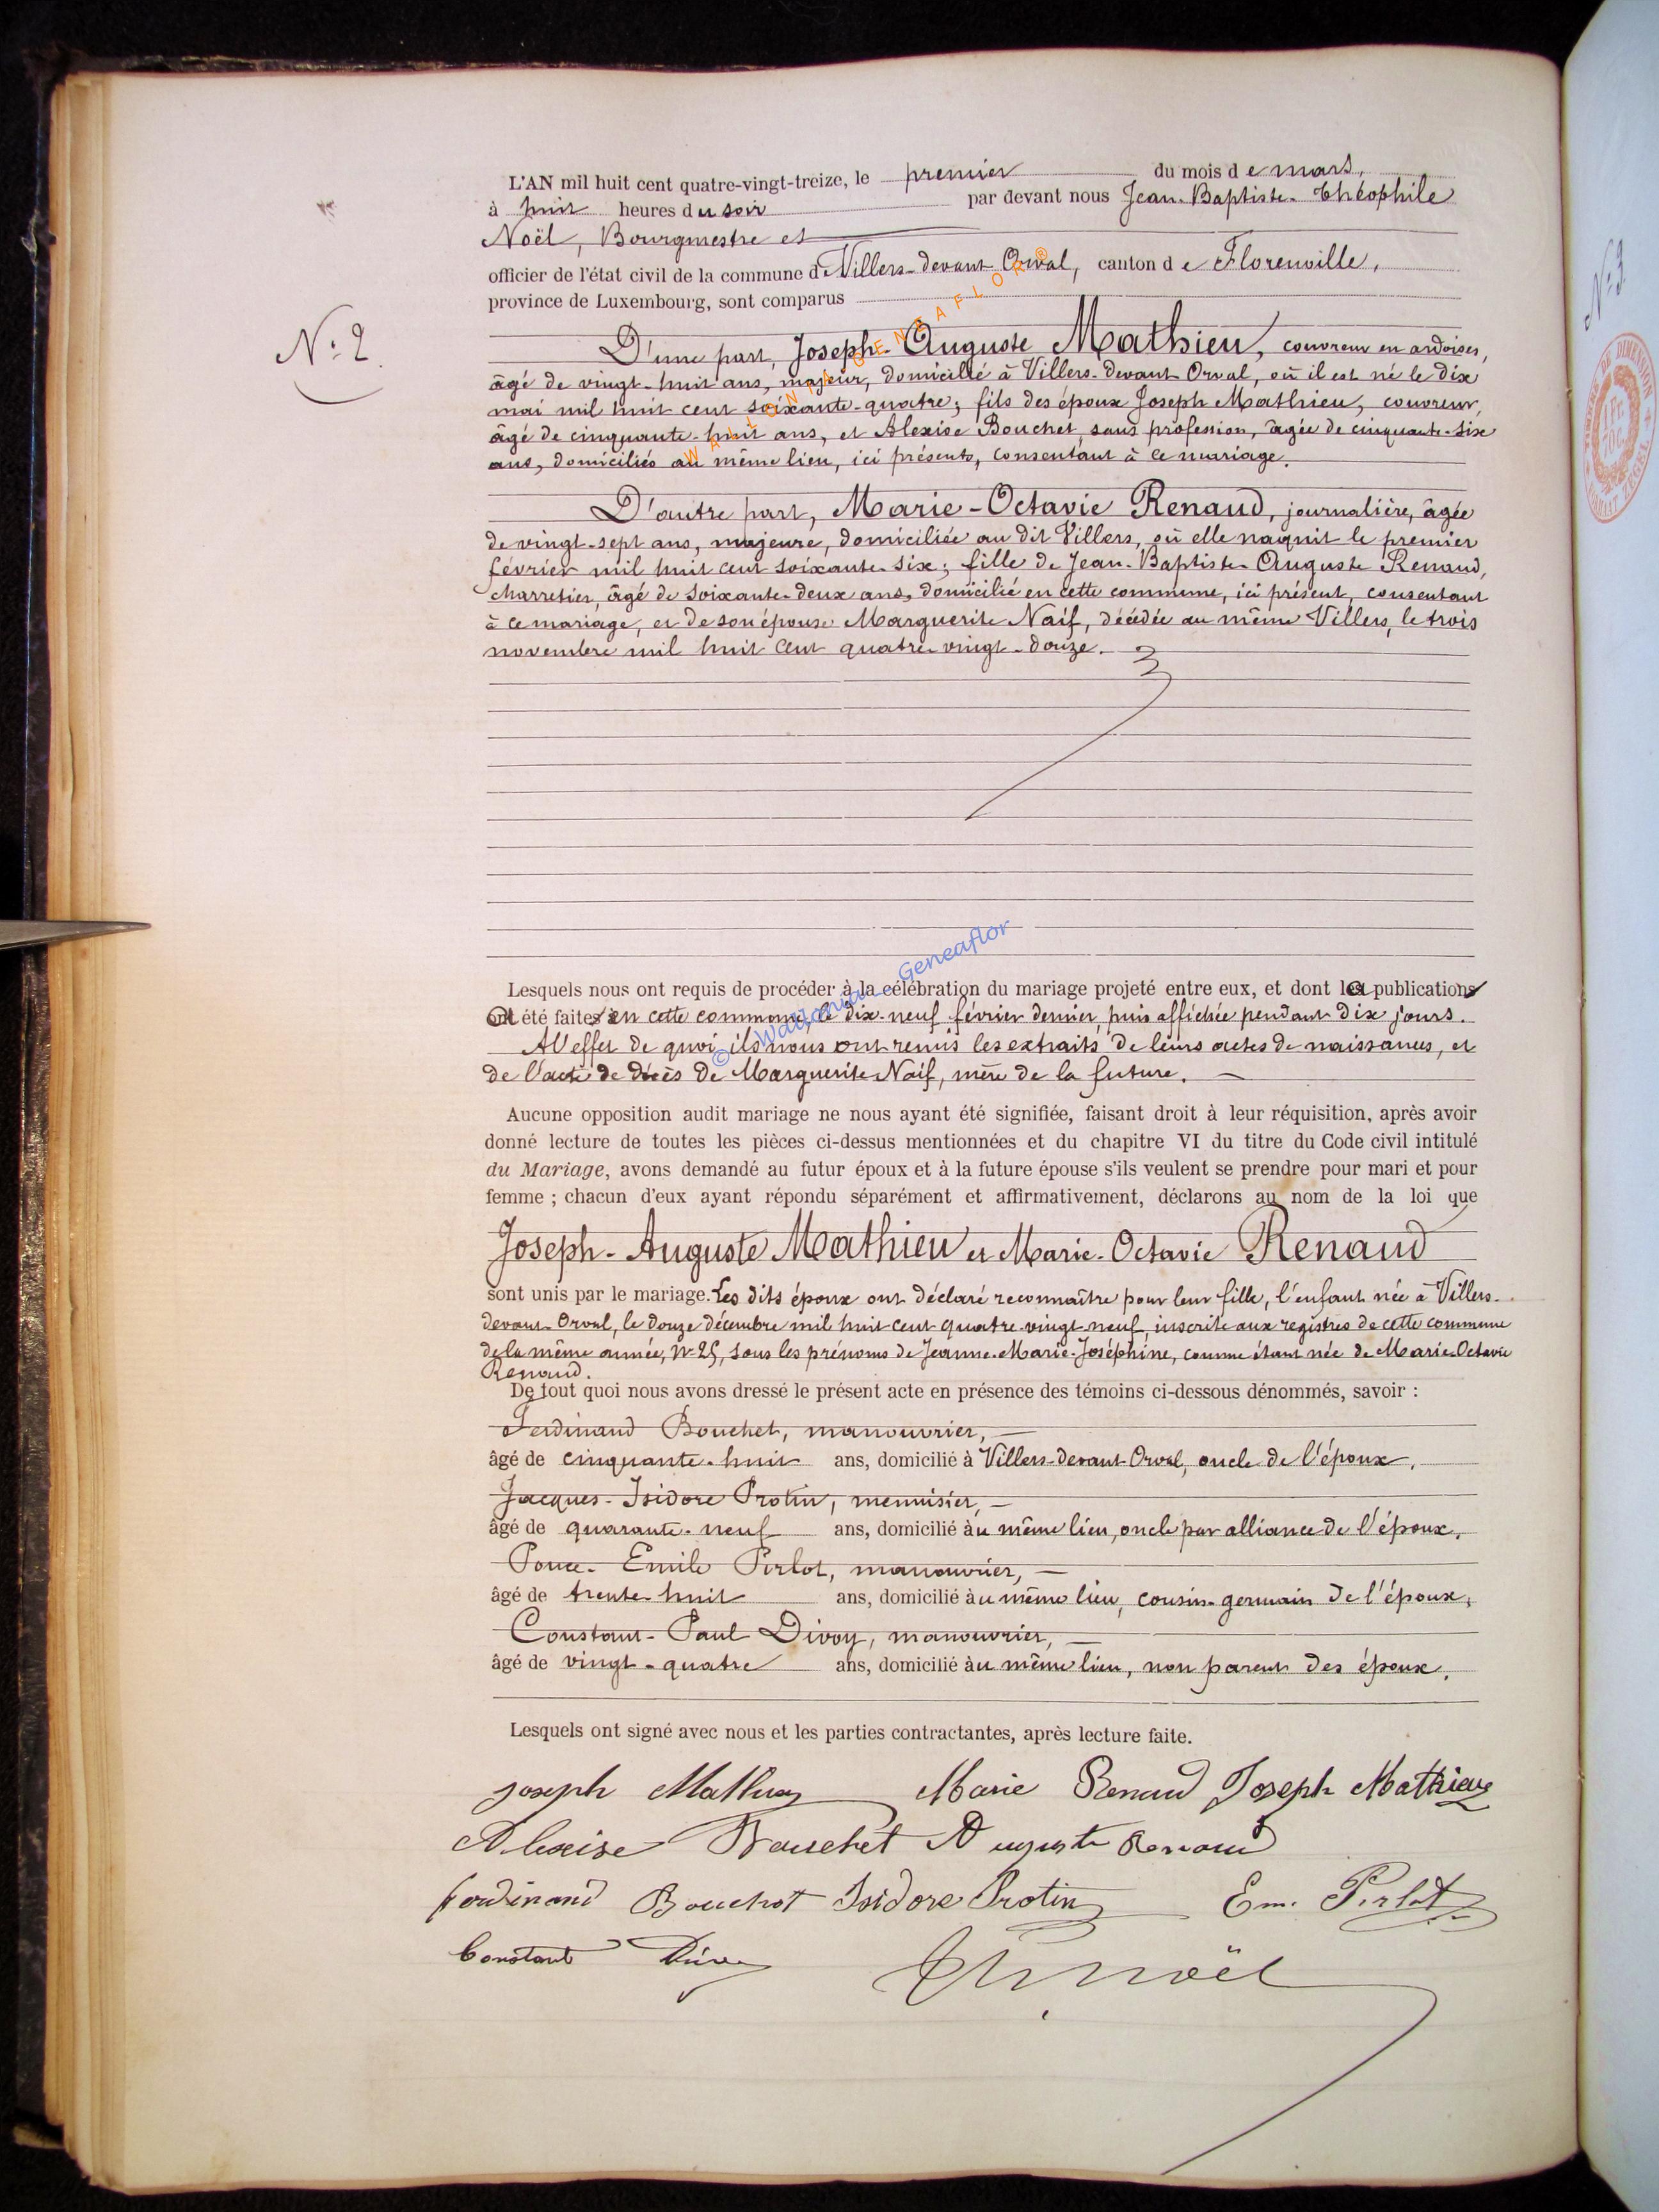 L'AN mil huit cent quatre-vingt-treize, le premier du mois de mars,
à huit heures du soir par devant nous Jean-Baptiste-Théophile
Noël, Bourgmestre et
officier de l'état civil de la commune de Villers-devant-Orval, canton de Florenville,
province de Luxembourg, sont comparus
N° 2
D'une part, Joseph-Auguste Mathieu, couvreur en ardoises,
âgé de vingt-huit ans, majeur, domicilié à Villers-devant-Orval, où il est né le dix
mai mil huit cent soixante-quatre; fils des époux Joseph Mathieu, couvreur,
âgé de cinquante-huit ans, et Alexise Bouchet, sans profession, âgée de cinquante-six
ans, domiciliés au même lieu, ici présents, consentant à ce mariage.
D'autre part, Marie-Octavie Renaud, journalière, âgée
de vingt-sept ans, majeure, domiciliée au dit Villers, où elle naquit le premier
février mil huit cent soixante-six; fille de Jean-Baptiste-Auguste Renaud,
charretier, âgé de soixante-deux ans, domicilié en cette commune, ici présent, consentant
à ce mariage, et de son épouse Marguerite Naif, décédée au même Villers, le trois
novembre mil huit cent quatre-vingt-douze.
Lesquels nous ont requis de procéder à la célébration du mariage projeté entre eux, et dont la publication
été faite en cette commune, le dix-neuf février dernier, puis affichée pendant dix jours.
A l'effet de quoi ils nous ont remis les extraits de leurs actes de naissances, et
de l'acte de décès de Marguerite Naif, mère de la future.
Aucune opposition audit mariage ne nous ayant été signifiée, faisant droit à leur réquisition, après avoir
donné lecture de toutes les pièces ci-dessus mentionnées et du chapitre VI du titre du Code civil intitulé
du Mariage, avons demandé au futur époux et à la future épouse s'ils veulent se prendre pour mari et pour
femme ; chacun d'eux ayant répondu séparément et affirmativement, déclarons au nom de la loi que
Joseph-Auguste Mathieu et Marie-Octavie Renaud
sont unis par le mariage. Les dits époux ont déclaré reconnaître pour leur fille, l'enfant née à Villers-
devant-Orval, le douze décembre mil huit cent quatre-vingt-neuf, inscrite aux registres de cette commune
de la même année, N° 25, sous les prénoms de Jeanne-Marie-Joséphine, comme étant née de Marie-Octavie
Renaud.
De tout quoi nous avons dressé le présent acte en présence des témoins ci-dessous dénommés, savoir :
Ferdinand Bouchet, manouvrier,
âgé de cinquante-huit ans, domicilié à Villers-devant-Orval, oncle de l'époux,
Jacques-Isidore Protin, menuisier,
âgé de quarante-neuf ans, domicilié au même lieu, oncle par alliance de l'époux,
Ponce-Emile Pirlot, manouvrier,
âgé de trente-huit ans, domicilié au même lieu, cousin-germain de l'époux,
Constant-Paul Divoy, manouvrier,
âgé de vingt-quatre ans, domicilié au même lieu, non parent des époux.
Lesquels ont signé avec nous et les parties contractantes, après lecture faite.
Joseph Mathieu Marie Renaud Joseph Mathieu
Alexise Bouchet Auguste Renaud
Ferdinand Bouchet Isidore Protin Em. Pirlot
Constant Divoy Th Noël
WALLONIA GENEAFLOR ®
© Wallonia_Geneaflor
N° 3